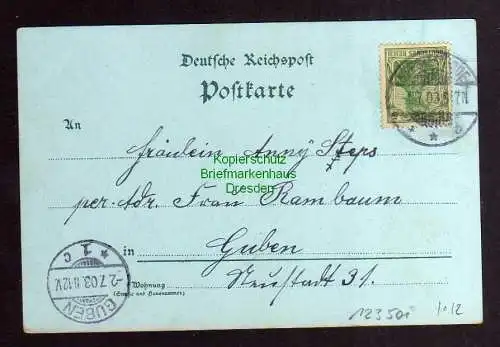 Deutsche Reichspost
Postkarte
An
Fräulein Anny Steps
Kopierschutz
Briefmarkenhaus
Dresden
per. Adr. Frau Rambaum
in Guben
Wohnung
(Straße und Hausnummer)
Neustadt 31.
GUBEN
* 1 c
2.7.03.8-12V.
12350i
10/2